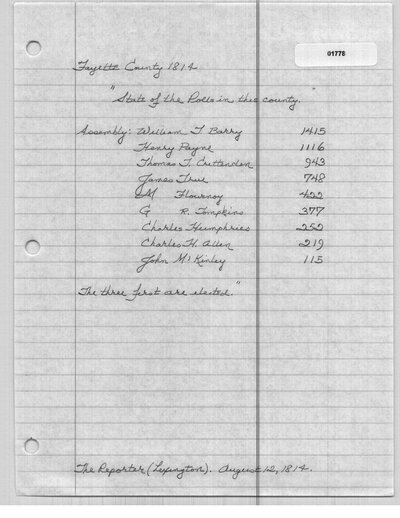 01778
Fayette County 1814
"State of the Polls in this county.
Assembly: William T Barry 1415
Henry Payne 1116
Thomas T. Crittenden 943
James True 748
M Flournoy 422
G R. Tompkins 377
Charles Humphries 252
Charles H. Allen 219
John McKinley 115
The three first are elected."
The Reporter (Lexington). August 12, 1814.